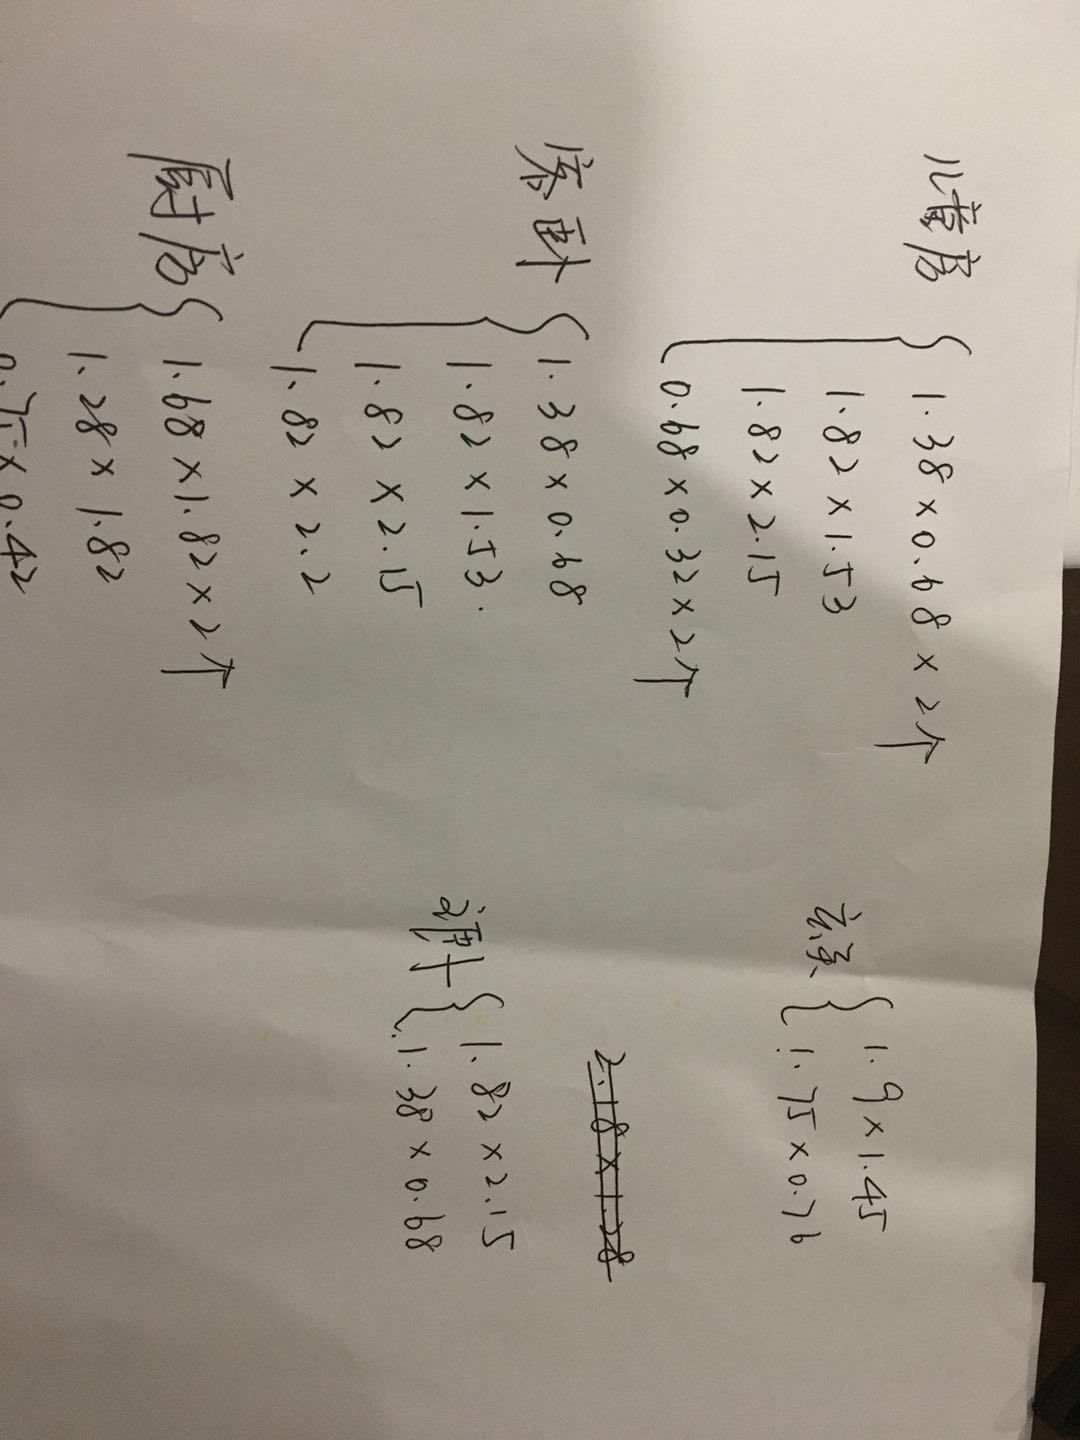 儿童房
1.38×0.68×2个
1.82×1.53
1.82×2.15
0.68×0.32×2个
客卧
1.38×0.68
1.82×1.53.
1.82×2.15
1.82×2.2
厨房
1.68×1.82×2个
1.28×1.82
0.75×0.42
1.9×1.45
1.75×0.76
2.18×1.28
1.82×2.15
1.38×0.68